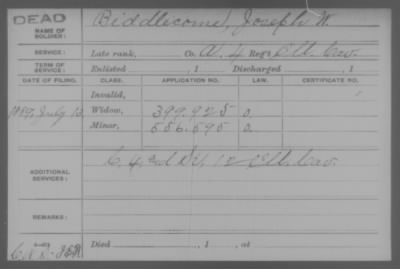 DEAD
NAME OF SOLDIER: Biddlecome, Joseph W.
SERVICE: Late rank, Co. A, 4 Reg't Cav.
TERM OF SERVICE: Enlisted , 1 Discharged , 1
DATE OF FILING. CLASS. APPLICATION NO. LAW. CERTIFICATE NO.
Invalid,
1889, July 13 Widow, 399.925 O.
Minor, 556.595 O.
ADDITIONAL SERVICES: Cav.
REMARKS:
Died , 1 , at